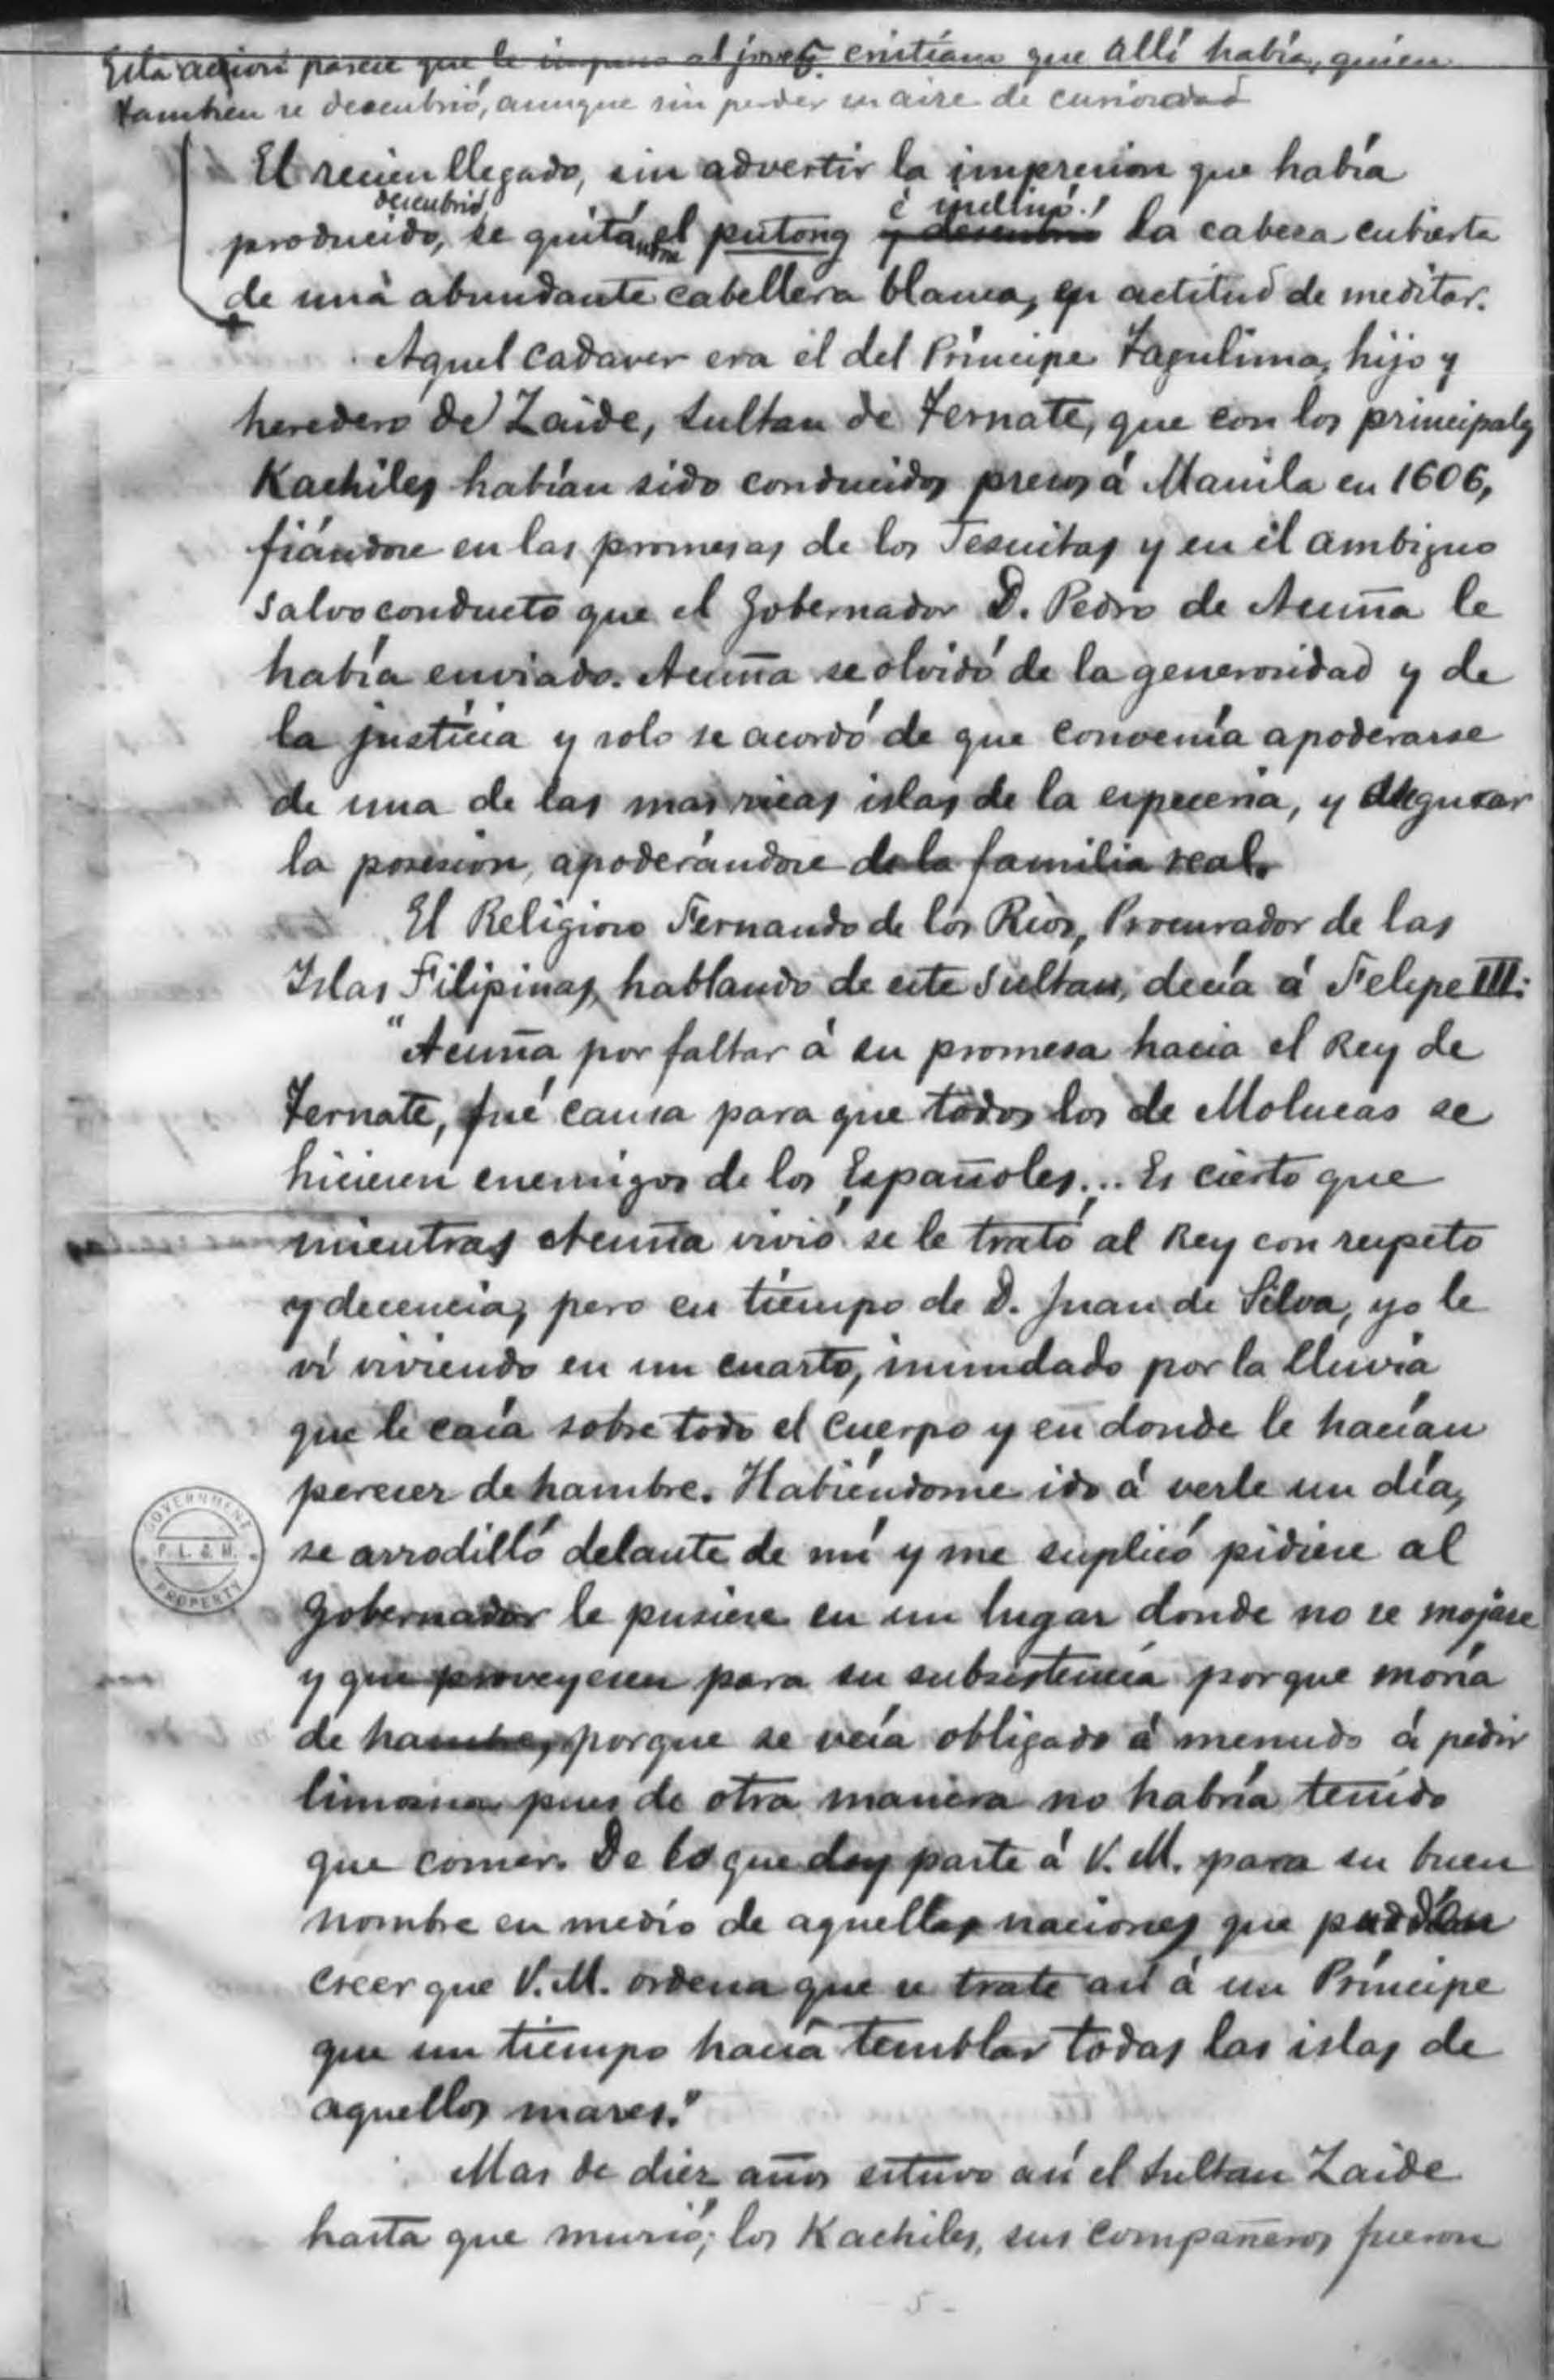 Esta accion parece que le impuso al joven cristiano que allí había, quien
tambien se descubrió, aunque sin perder su aire de curiosidad
El recien llegado, sin advertir la impresion que había
descubrió é inclinó
producido, se quitándose el putong y descubrió la cabeza cubierta
de una abundante cabellera blanca, en actitud de meditar.
Aquel cadaver era el del Príncipe Tagulima, hijo y
heredero de Zaide, sultan de Ternate, que con los principales
Kachiles habían sido conducidos presos á Manila en 1606,
fiándose en las promesas de los Jesuitas y en el ambiguo
salvoconducto que el Gobernador D. Pedro de Acuña le
había enviado. Acuña se olvidó de la generosidad y de
la justicia y solo se acordó de que convenía apoderarse
de una de las mas ricas islas de la especería, y asegurar
la posesion, apoderándose de la familia real.
El Religioso Fernando de los Rios, Procurador de las
Islas Filipinas, hablando de este Sultan, decía á Felipe III:
"Acuña por faltar á su promesa hacia el Rey de
Ternate, fué causa para que todos los de Molucas se
hiciesen enemigos de los Españoles... Es cierto que
mientras Acuña vivió se le trató al Rey con respeto
y decencia, pero en tiempo de D. Juan de Silva, yo le
ví viviendo en un cuarto, inundado por la lluvia
que le caía sobre todo el cuerpo y en donde le hacían
perecer de hambre. Habiéndome ido á verle un día,
se arrodilló delante de mí y me suplicó pidiese al
Gobernador le pusiese en un lugar donde no se mojase
y que proveyesen para su subsistencia porque moría
de hambre, porque se veía obligado á menudo á pedir
limosna pues de otra manera no habría tenido
que comer. De lo que doy parte á V. M. para su buen
nombre en medio de aquellas naciones que puedan
creer que V. M. ordena que se trate así á un Príncipe
que un tiempo hacía temblar todas las islas de
aquellos mares."
Mas de diez años estuvo así el sultan Zaide
hasta que murió; los Kachiles, sus compañeros fueron
GOVERNMENT
P. L. & M.
PROPERTY
5 -